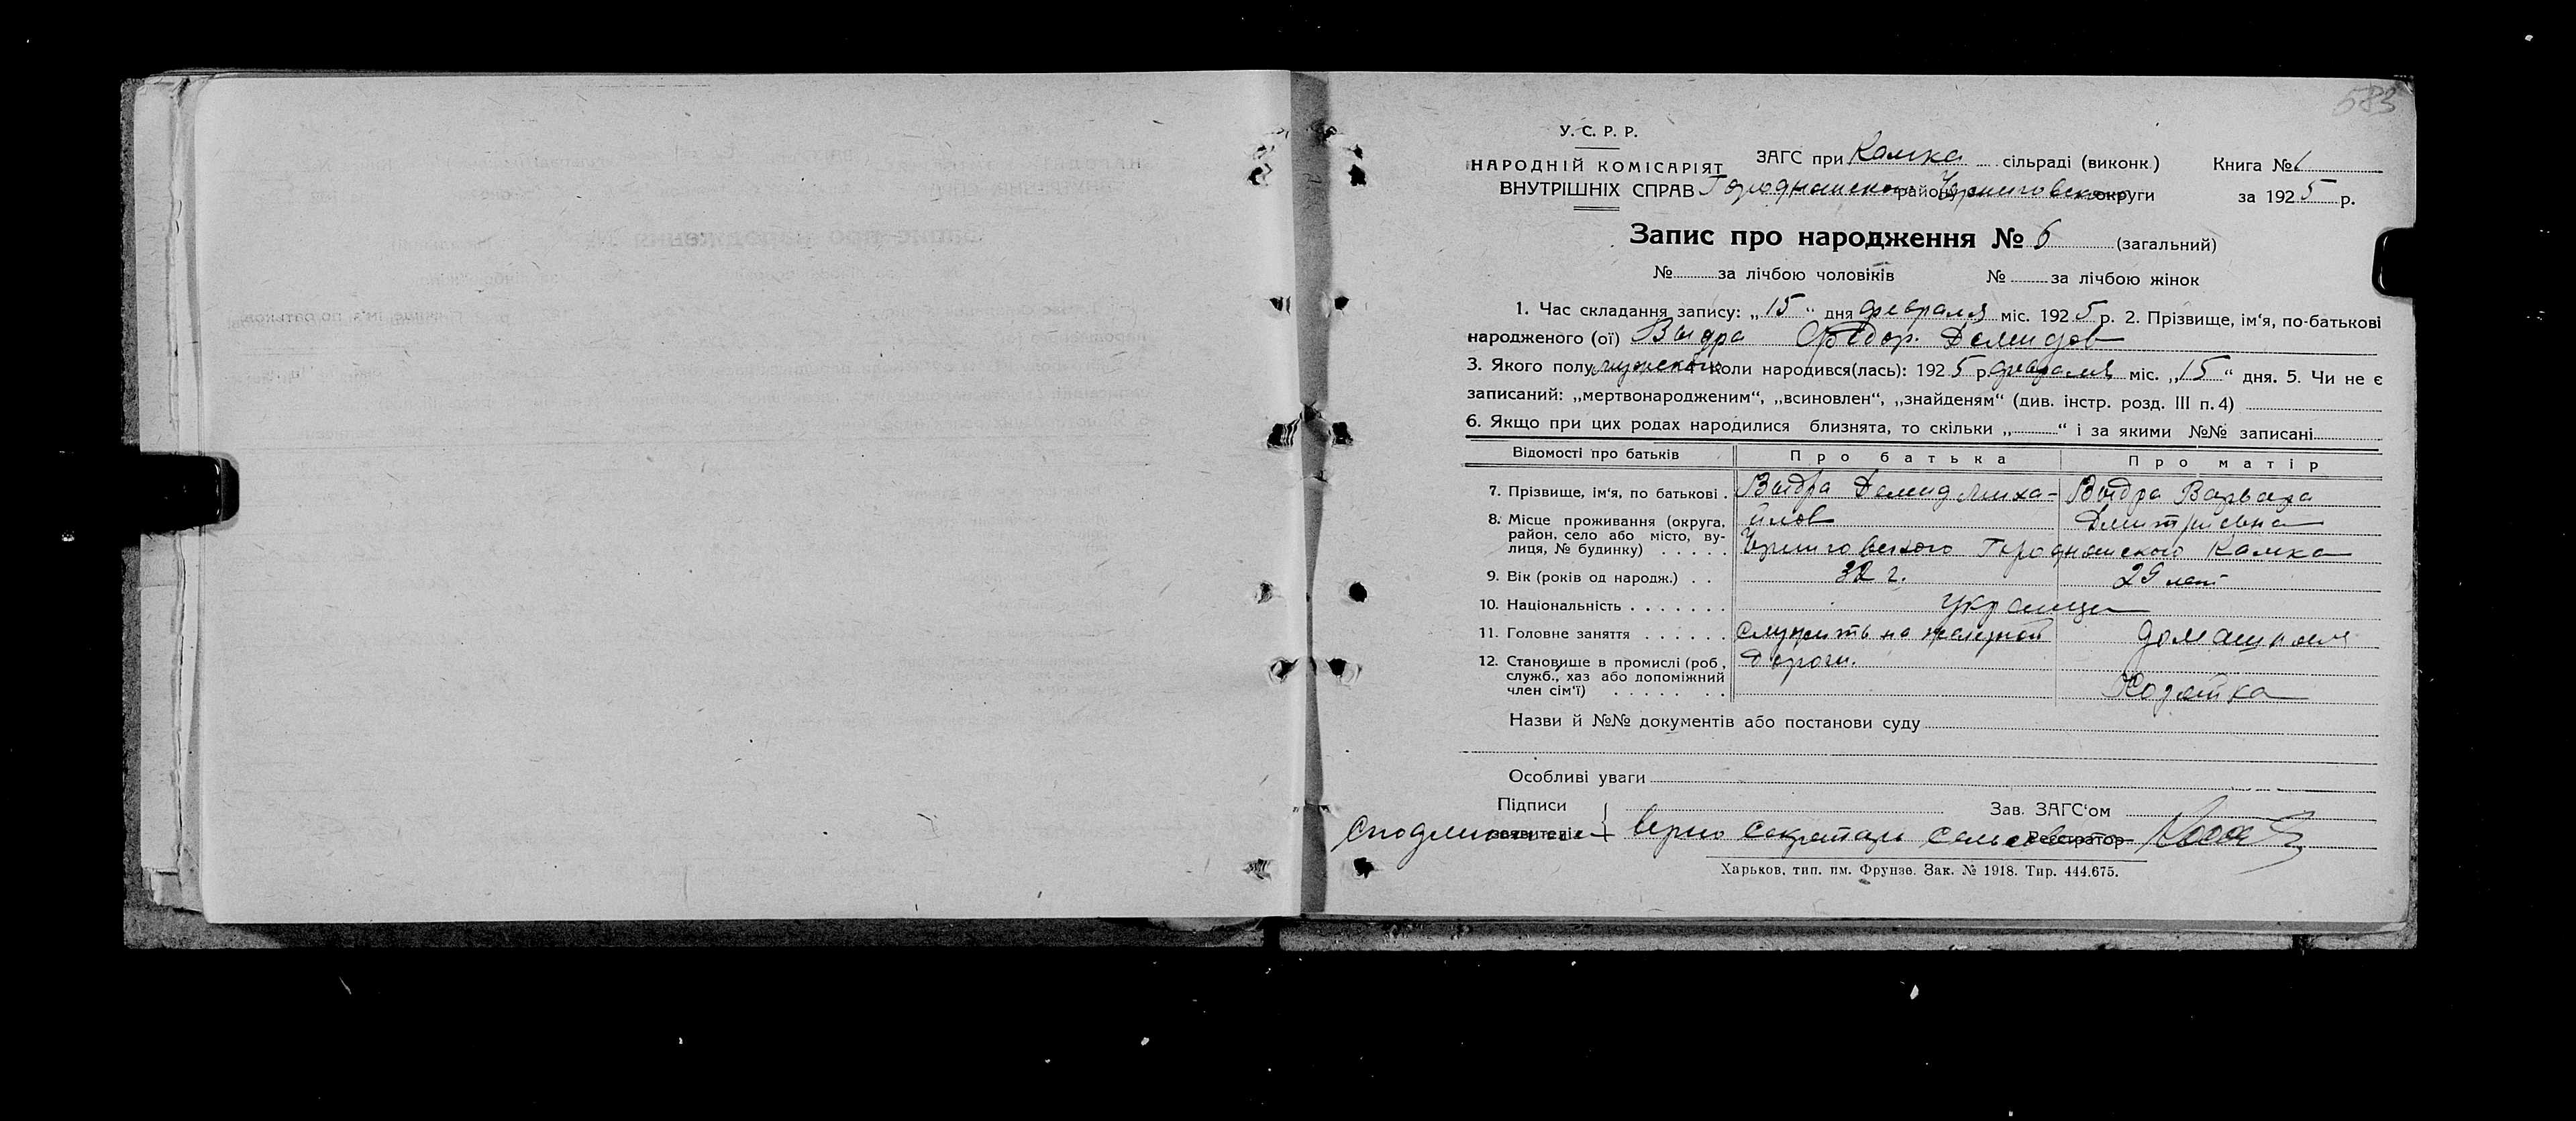 583
У. С. Р. Р.
НАРОДНІЙ КОМІСАРІЯТ
ВНУТРІШНІХ СПРАВ
ЗАГС при Камка сільраді (виконк.)
Городнянского району Черниговского округи
Книга № 1
за 1925 р.
Запис про народження № 6 (загальний)
№ за лічбою чоловіків № за лічбою жінок
1. Час складання запису: „15“ дня февраля міс. 1925 р. 2. Прізвище, ім‘я, по-батькові
народженого (ої) Выдра Федор Демидов
3. Якого полу мужского коли народився(лась): 1925 р. февраля міс. „15“ дня. 5. Чи не є
записаний: „мертвонародженим“, „всиновлен“, „знайденям“ (див. інстр. розд. III п. 4)
6. Якщо при цих родах народилися близнята, то скільки „ “ і за якими №№ записані
Відомості про батьків Про батька Про матір
7. Прізвище, ім‘я, по батькові Выдра Демид Миха- Выдра Варвара
йлов Дмитриевна
8. Місце проживання (округа, район, село або місто, ву-
лиця, № будинку) Черниговского Городнянского Камка
9. Вік (років од народж.) 32 г. 29 лет
10. Національність Украинци
11. Головне заняття Служить на железной домашняя
дороги.
12. Становище в промислі (роб,
служб., хаз або допоміжний
член сім‘ї) Хозяйка
Назви й №№ документів або постанови суду
Особливі уваги
Підписи Зав. ЗАГС‘ом
заявителів Реєстратор
С подлинным верно Секретарь Сельсовета
Харьков, тип. им. Фрунзе. Зак. № 1918. Тир. 444.675.